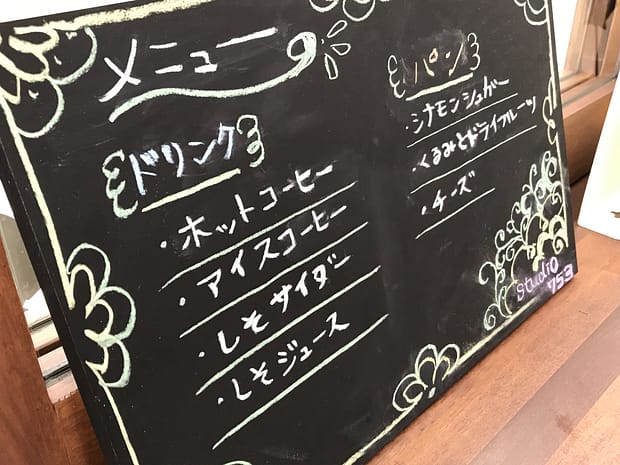 メニュー
ドリンク
・ホットコーヒー
・アイスコーヒー
・しそサイダー
・しそジュース
パン
・シナモンシュガー
・くるみとドライフルーツ
・チーズ
Studio
753